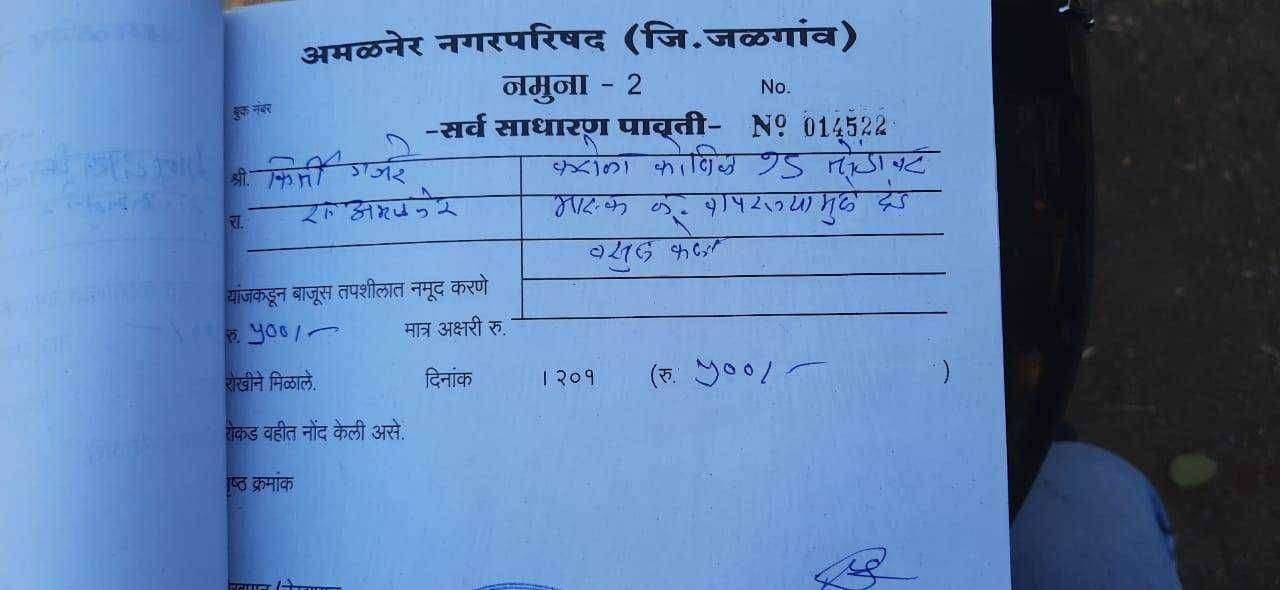 अमळनेर नगरपरिषद (जि.जळगांव)
नमुना - 2 No.
बुक नंबर
-सर्व साधारण पावती- Nº 014522
श्री. किर्ती गुजर कोरोना कोविड १९ तोंडावर
रा. रा. अमळनेर मास्क न वापरल्यामुळे दंड
वसुल केला
यांजकडून बाजूस तपशीलात नमूद करणे
रु. ५००/- मात्र अक्षरी रु.
रोखीने मिळाले. दिनांक । २०१ (रु. ५००/- )
रोकड वहीत नोंद केली असे.
पृष्ठ क्रमांक